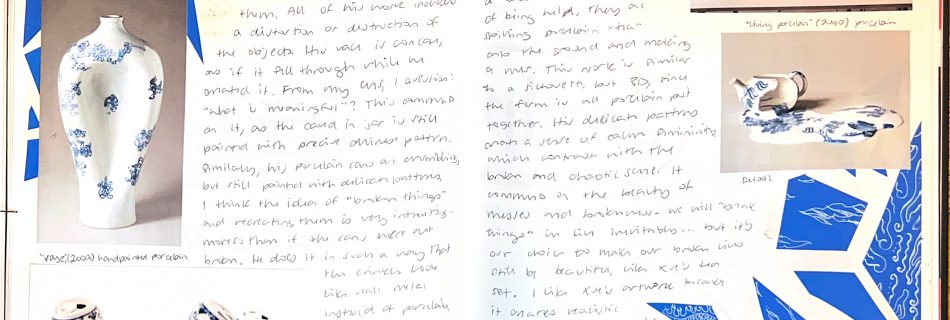 them. All of his work include
a distortion or destruction of
the objects. His vase is concave,
as if it fell through while he
created it. From my CNS, I question:
"what is meaningful"? This comments
on it, as the caved in jar is still
painted with precise chinese pattern.
Similarly, his porcelain cans are crumbling,
but still painted with delicate patterns.
I think the idea of "broken things"
and recreating them is very intresting-
moreso than if the cans were not
broken. He does it in such a way that
the crinkles look
like real metal
instead of porcelain,
"Vase," (2009) handpainted porcelain
of being held, they are
spilling porcelain "tea"
onto the ground and making
a mess. This work is similar
to a silhouette, but 3D, since
the form is all porcelain put
together. His delicate patterns
create a sense of calm femininity
which contrast with the
broken and chaotic scene. It
comments on the beauty of
messes and brokenness- we will "break
things" in life inevitably... but it's
our choice to make our broken lives
still be beautiful, like Xue's tea
set. I like Xue's artwork because
it creates realistic
"Living porcelain" (2010) porcelain
Detail